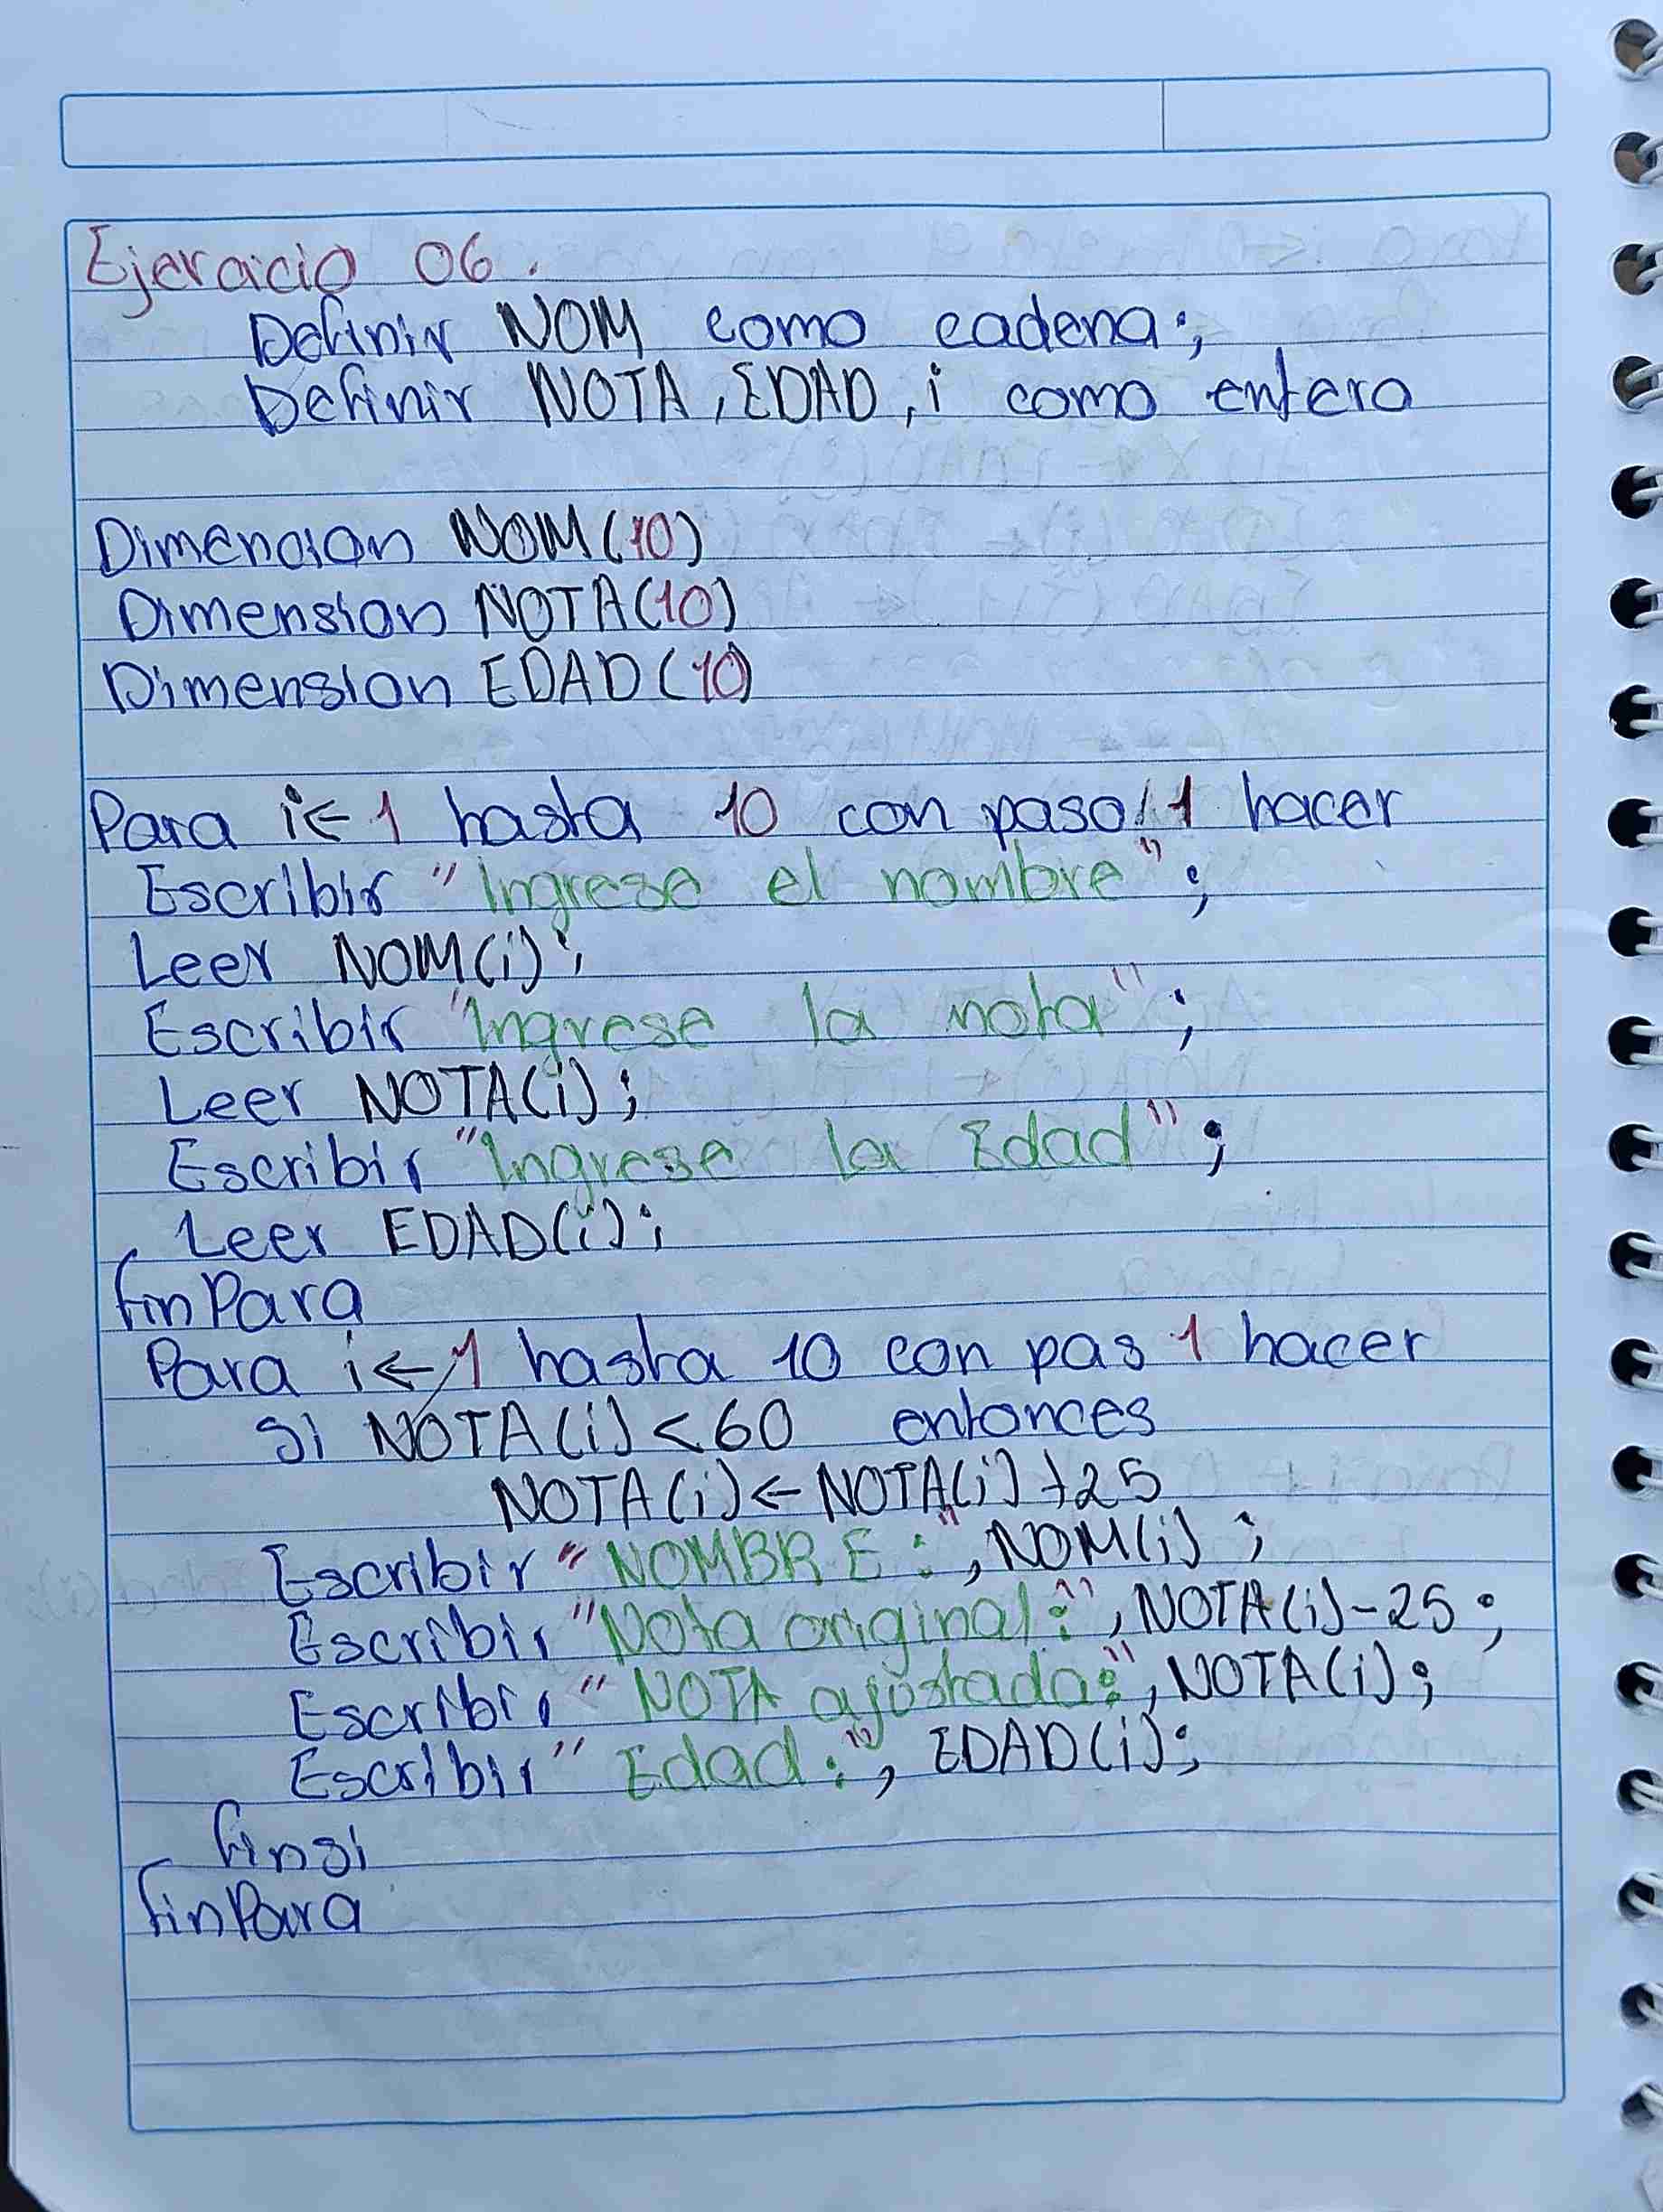 Ejercicio 06.
Definir NOM como cadena;
Definir NOTA, EDAD, i como entero
Dimencion NOM(10)
Dimension NOTA(10)
Dimension EDAD(10)
Para i← 1 hasta 10 con paso 1 hacer
Escribir "Ingrese el nombre";
Leer NOM(i);
Escribir "Ingrese la nota";
Leer NOTA(i);
Escribir "Ingrese la Edad";
Leer EDAD(i);
finPara
Para i← 1 hasta 10 con pas 1 hacer
Si NOTA(i)<60 entonces
NOTA(i)← NOTA(i)+25
Escribir "NOMBRE:", NOM(i);
Escribir "Nota original:", NOTA(i)-25;
Escribir "NOTA ajustada:", NOTA(i);
Escribir "Edad:", EDAD(i);
finsi
finPara